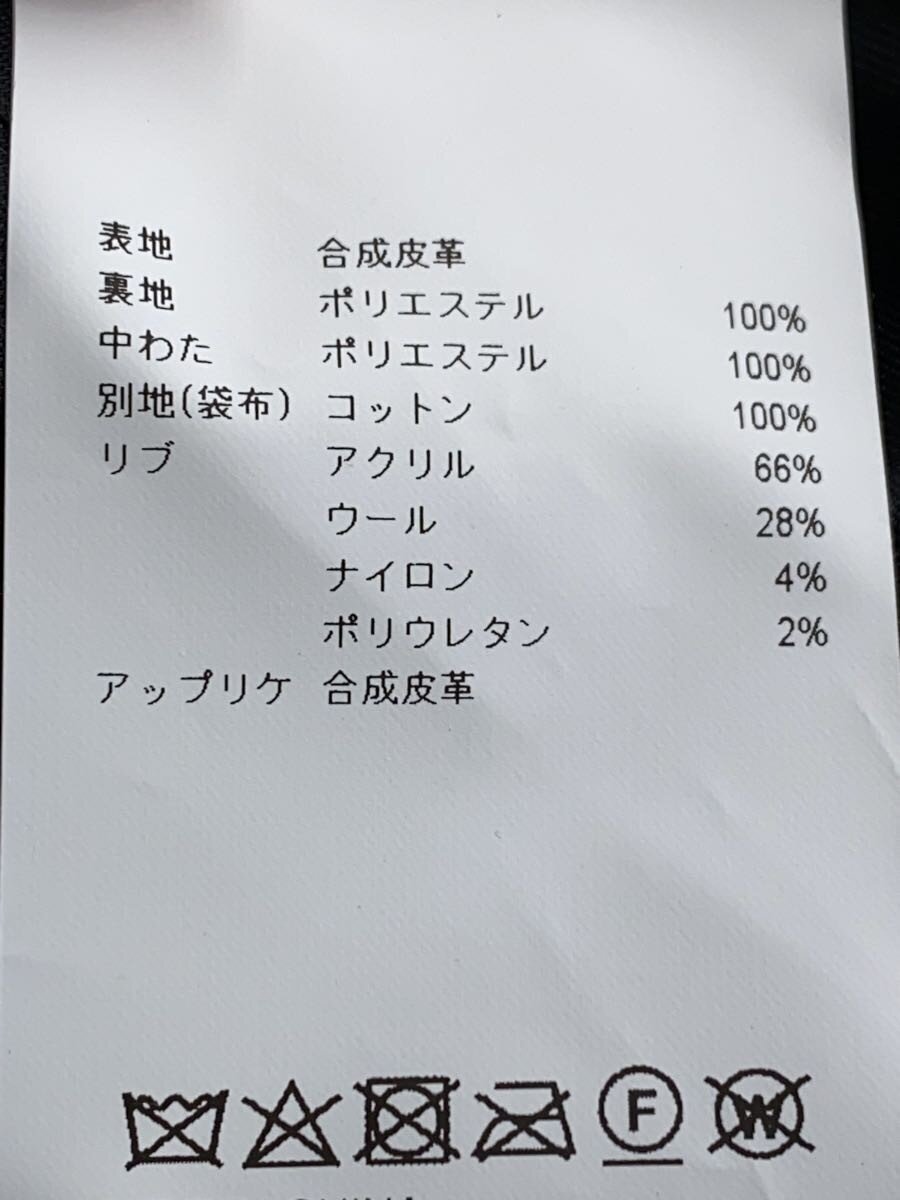 表地 合成皮革
裏地 ポリエステル 100%
中わた ポリエステル 100%
別地(袋布) コットン 100%
リブ アクリル 66%
ウール 28%
ナイロン 4%
ポリウレタン 2%
アップリケ 合成皮革
F W